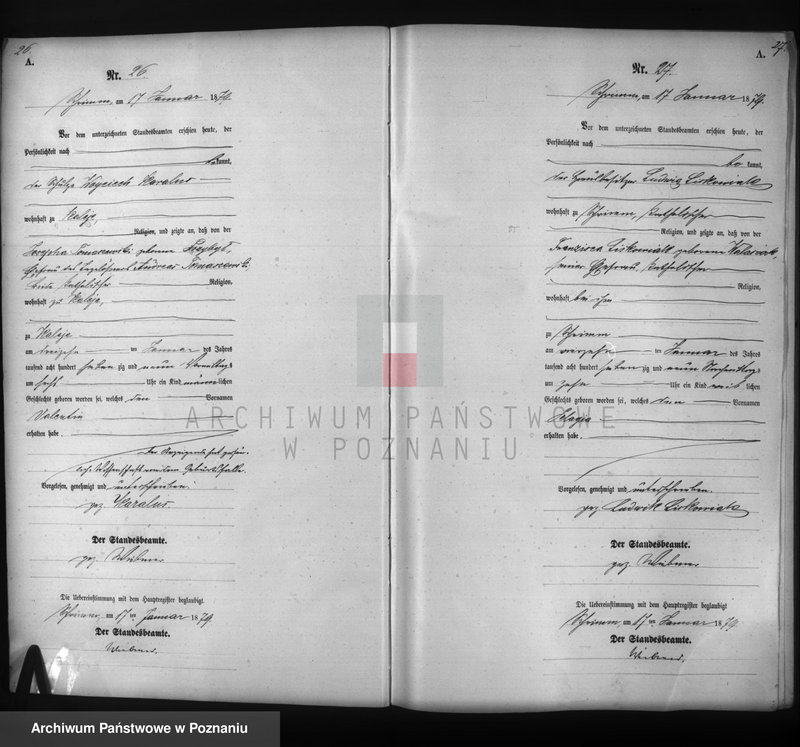 26.
A.
Nr. 26.
Schrimm, am 17 Januar 1879.
Vor dem unterzeichneten Standesbeamten erschien heute, der
Persönlichkeit nach
bekannt,
der Schulze Woyciech Maralus
wohnhaft zu Maleje,
Religion, und zeigte an, daß von der
Tomaszewska geborene
Ehefrau des Andreas Tomaszewski
beide katholischer Religion,
wohnhaft zu Maleje,
zu Maleje
am Januar des Jahres
tausend acht hundert sieben zig und neun Vormittags
um sechs Uhr ein Kind männlichen
Geschlechts geboren worden sei, welches den Vornamen
Valentin
erhalten habe.
Der Anzeigende hat
Wissenschaft von dem Geburtsfalle.
Vorgelesen, genehmigt und unterschrieben.
gez. Maralus.
Der Standesbeamte.
gez.
Die Uebereinstimmung mit dem Hauptregister beglaubigt
Schrimm, am 17ten Januar 1879.
Der Standesbeamte.
27.
A.
Nr. 27.
Schrimm, am 17 Januar 1879.
Vor dem unterzeichneten Standesbeamten erschien heute, der
Persönlichkeit nach
bekannt,
der Ludwig Liskowiak
wohnhaft zu Schrimm, katholischer
Religion, und zeigte an, daß von der
Franzisca Liskowiak geborene
seiner Ehefrau, katholischer
Religion,
wohnhaft bei ihm
zu Schrimm
am vierzehn ten Januar des Jahres
tausend acht hundert sieben zig und neun Nachmittags
um zehn Uhr ein Kind weiblichen
Geschlechts geboren worden sei, welches den Vornamen
Pelagia
erhalten habe.
Vorgelesen, genehmigt und unterschrieben.
gez. Ludwik Liskowiak
Der Standesbeamte.
gez.
Die Uebereinstimmung mit dem Hauptregister beglaubigt
Schrimm, am 17ten Januar 1879.
Der Standesbeamte.
ARCHIWUM PAŃSTWOWE
W POZNANIU
Archiwum Państwowe w Poznaniu